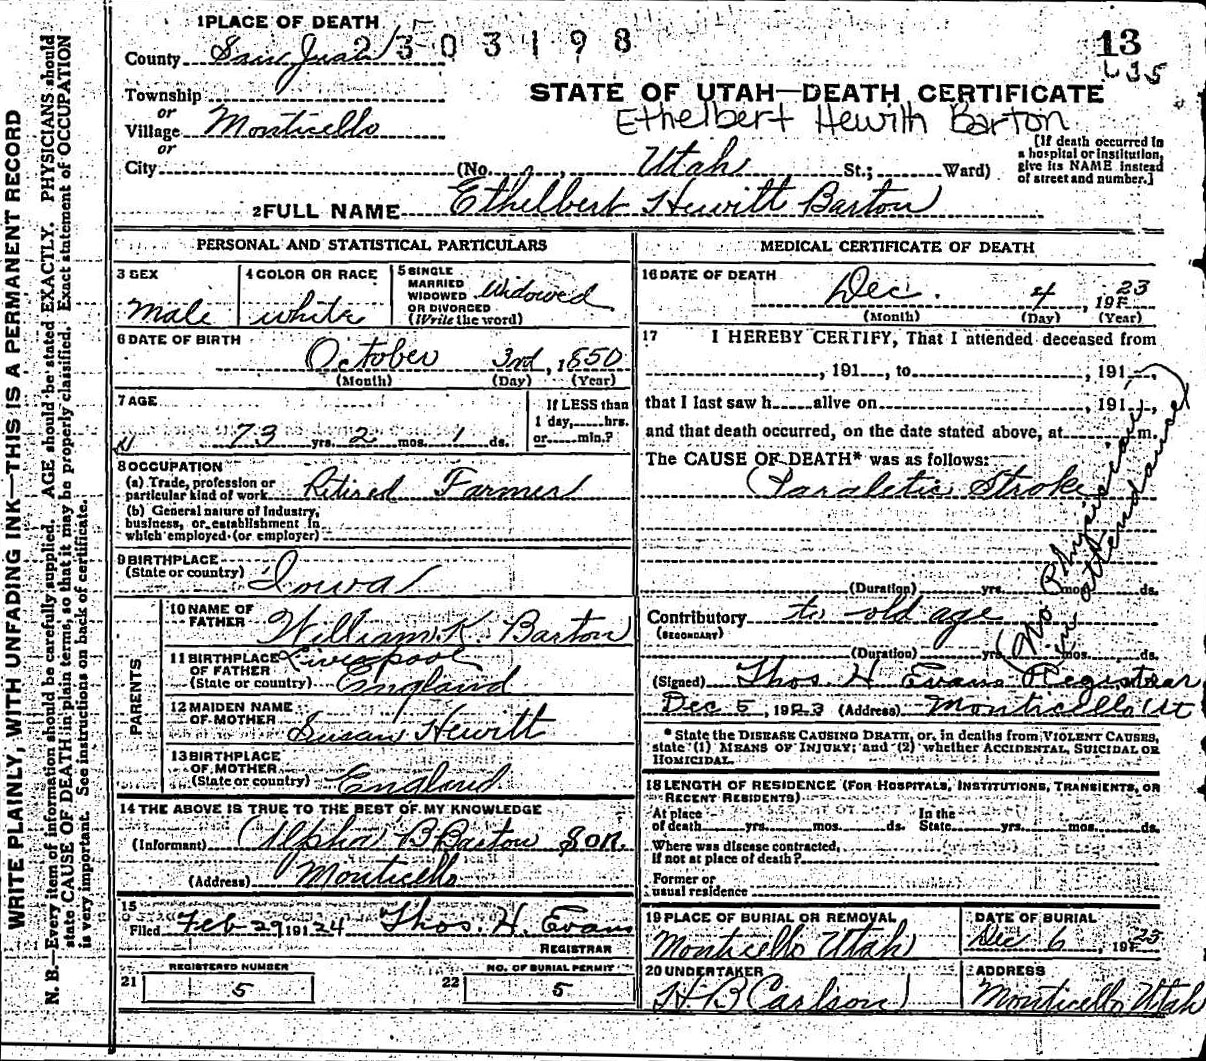 WRITE PLAINLY, WITH UNFADING INK—THIS IS A PERMANENT RECORD
N. B.—Every item of information should be carefully supplied. AGE should be stated EXACTLY. PHYSICIANS should
state CAUSE OF DEATH in plain terms, so that it may be properly classified. Exact statement of OCCUPATION
is very important. See instructions on back of certificate.
1 PLACE OF DEATH
2303198
13
County San Juan
635
Township
or
Village Monticello
or
City
STATE OF UTAH—DEATH CERTIFICATE
Ethelbert Hewith Barton
(No. Utah St.; Ward)
[If death occurred in
a hospital or institution,
give its NAME instead
of street and number.]
2 FULL NAME Ethelbert Hewitt Barton
PERSONAL AND STATISTICAL PARTICULARS
3 SEX
Male
4 COLOR OR RACE
white
5 SINGLE
MARRIED
WIDOWED
OR DIVORCED
(Write the word)
Widowed
6 DATE OF BIRTH
October 3rd, 1850
(Month) (Day) (Year)
7 AGE
73 yrs. 2 mos. 1 ds.
If LESS than
1 day, hrs.
or min.?
8 OCCUPATION
(a) Trade, profession or
particular kind of work Retired Farmer
(b) General nature of industry,
business, or establishment in
which employed (or employer)
9 BIRTHPLACE
(State or country) Iowa
PARENTS
10 NAME OF
FATHER William K. Barton
11 BIRTHPLACE
OF FATHER
(State or country) Liverpool
England
12 MAIDEN NAME
OF MOTHER Susan Hewitt
13 BIRTHPLACE
OF MOTHER
(State or country) England
14 THE ABOVE IS TRUE TO THE BEST OF MY KNOWLEDGE
(Informant) Alpha B Barton son.
(Address) Monticello
15
Filed Feb 29 191 24 Thos. H. Evans
REGISTRAR
21 REGISTERED NUMBER
5
22 NO. OF BURIAL PERMIT
5
MEDICAL CERTIFICATE OF DEATH
16 DATE OF DEATH
Dec. 4, 19 23
(Month) (Day) (Year)
17 I HEREBY CERTIFY, That I attended deceased from
, 191 , to , 191 ,
that I last saw h alive on , 191 ,
and that death occurred, on the date stated above, at m.
The CAUSE OF DEATH* was as follows:
Paraletic Stroke
(No Physician
in attendance)
(Duration) yrs. mos. ds.
Contributory to old age
(SECONDARY)
(Duration) yrs. mos. ds.
(Signed) Thos. H Evans Registrar
Dec 5, 1923 (Address) Monticello Ut
* State the DISEASE CAUSING DEATH, or, in deaths from VIOLENT CAUSES,
state (1) MEANS OF INJURY; and (2) whether ACCIDENTAL, SUICIDAL OR
HOMICIDAL.
18 LENGTH OF RESIDENCE (FOR HOSPITALS, INSTITUTIONS, TRANSIENTS, OR
RECENT RESIDENTS)
At place
of death yrs. mos. ds.
In the
State yrs. mos. ds.
Where was disease contracted,
if not at place of death?
Former or
usual residence
19 PLACE OF BURIAL OR REMOVAL
Monticello Utah
DATE OF BURIAL
Dec 6, 19 23
20 UNDERTAKER
H B Carlson
ADDRESS
Monticello Utah